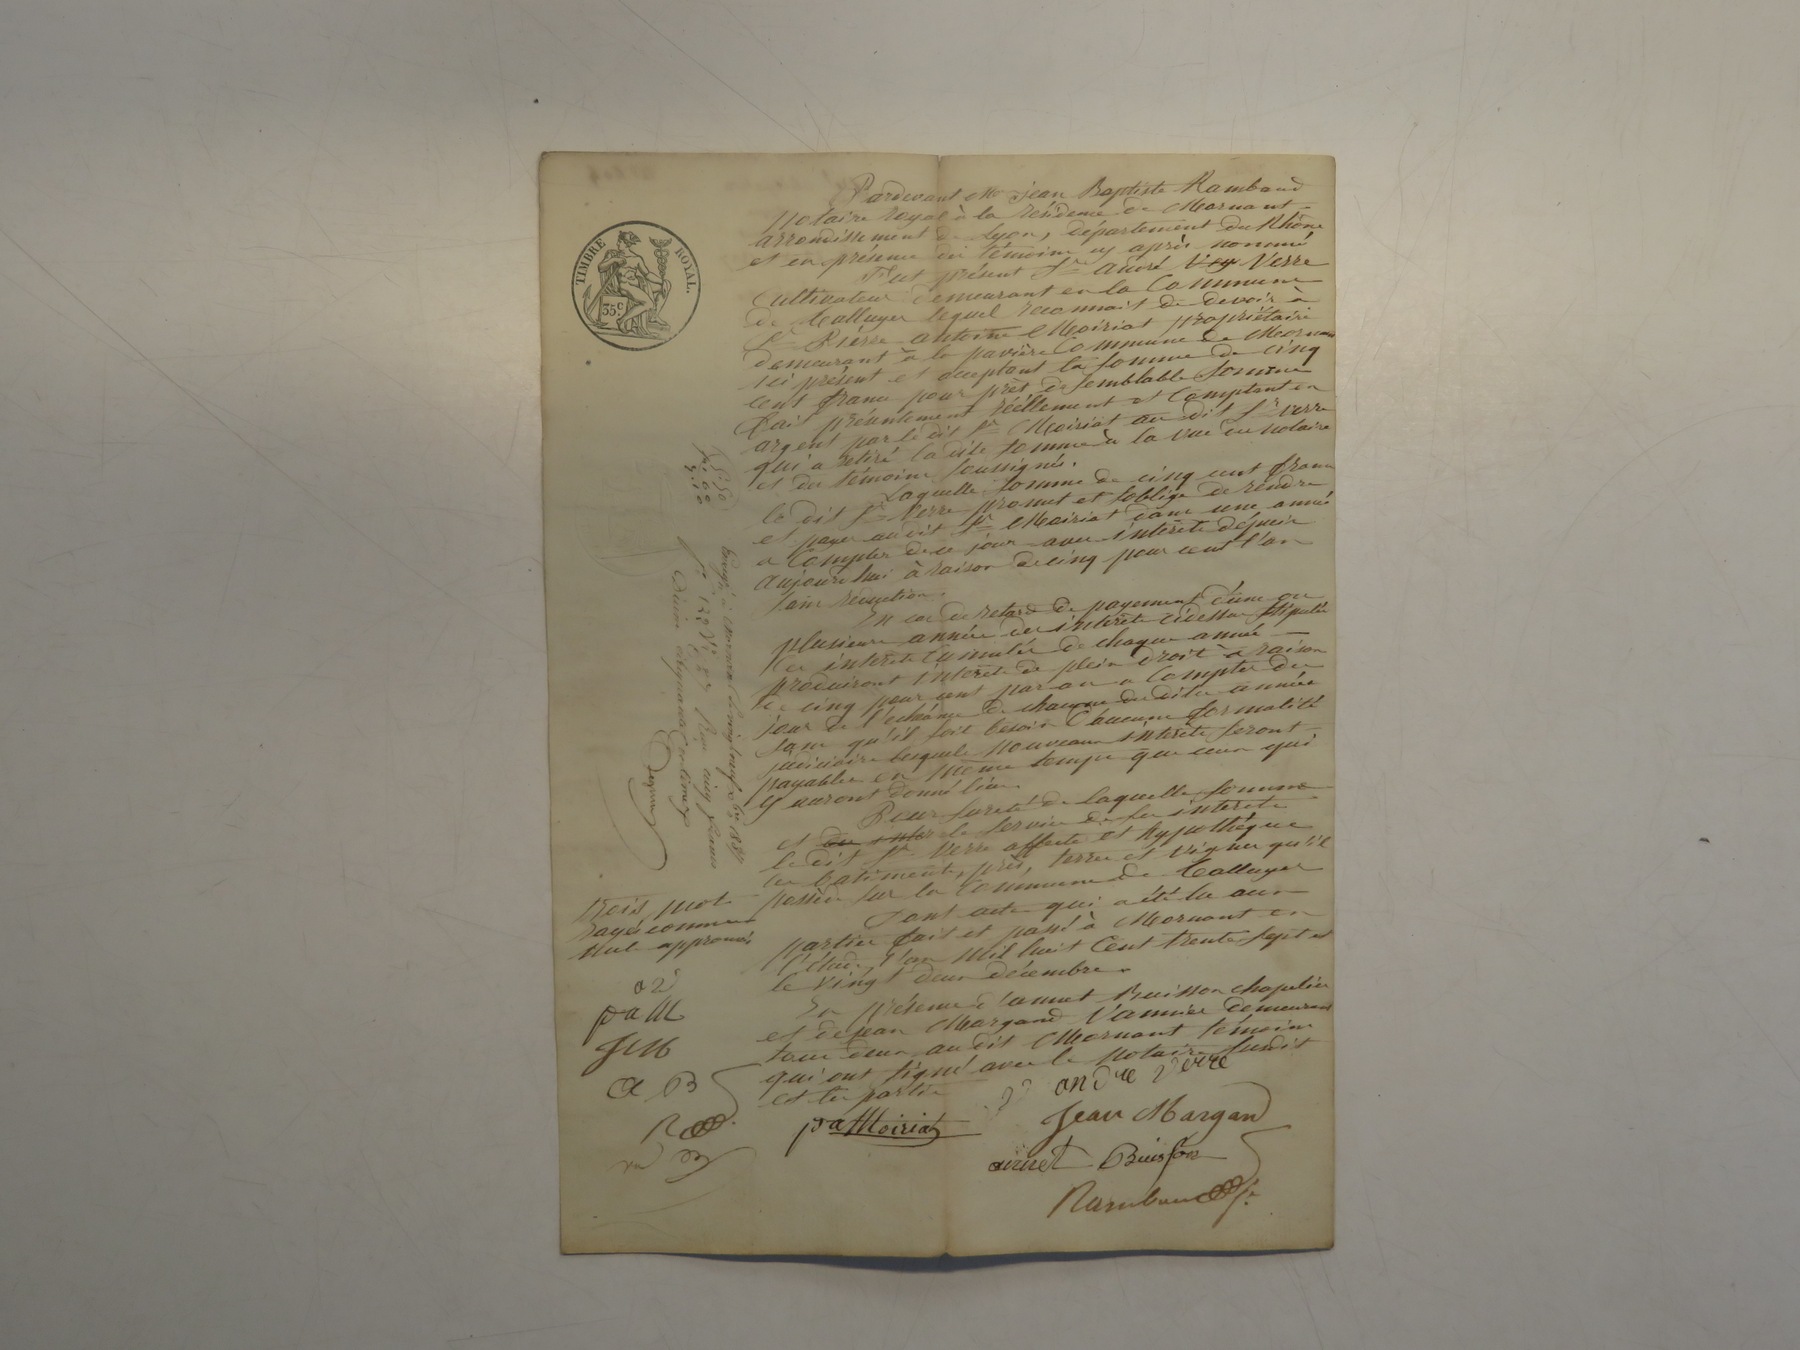 TIMBRE ROYAL.
35 c
Pardevant Me Jean Baptiste Rambaud
Notaire royal à la résidence de Mornant
arrondissement de Lyon, département du Rhône
et en présence des témoins cy après nommés
Fut présent Sr andré Verre
Cultivateur demeurant en la Commune
de tailluyer lequel reconnait de devoir à
Sr Pierre antoine Moiriat propriétaire
demeurant à la pavière Commune de Mornant
ici présent et acceptant la somme de cinq
cent francs pour prêt de semblable somme
fait présentement réellement et Comptant en
argent par le dit Sr Moiriat au dit Sr Verre
qui a retiré la dite somme à la vue du notaire
et des témoins soussignés.
Laquelle somme de cinq cent francs
le dit Sr Verre promet et s'oblige de rendre
et payer au dit Sr Moiriat dans une année
a Compter de ce jour avec intérêts depuis
aujourd'hui à raison de cinq pour cent l'an
sans retention.
En cas de retard de payement d'une ou
plusieurs années des intérêts cidessus stipulés
les intérêts Cumulés de chaque année
produiront intérêts de plein droit à raison
de cinq pour cent par an a Compter du
jour de l'echéance de chacune des dites années
sans qu'il soit besoin d'aucune formalité
judiciaire lesquels nouveaux intérêts seront
payables en même temps que ceux qui
y auront donné lieu.
Pour sureté de laquelle somme
et des inter le service de ses intérêts
le dit Sr Verre affecte et hypothèque
les batiments, prés, terres et vignes qu'il
possède sur la Commune de tailluyer
Dont acte qui a été lu aux
parties fait et passé à Mornant en
l'étude l'an Mil huit Cent trente sept et
le vingt deux décembre.
En présence d'annet Buisson chapelier
et de Jean Margand Vannier demeurant
tous deux au dit Mornant témoins
qui ont signé avec le Notaire susdit
et les parties
andre Verre
pa Moiriat
Jean Margand
annet Buisson
Rambaud
trois mot
rayés comme
nuls approuvés
a v
p a M
J M
a B
R